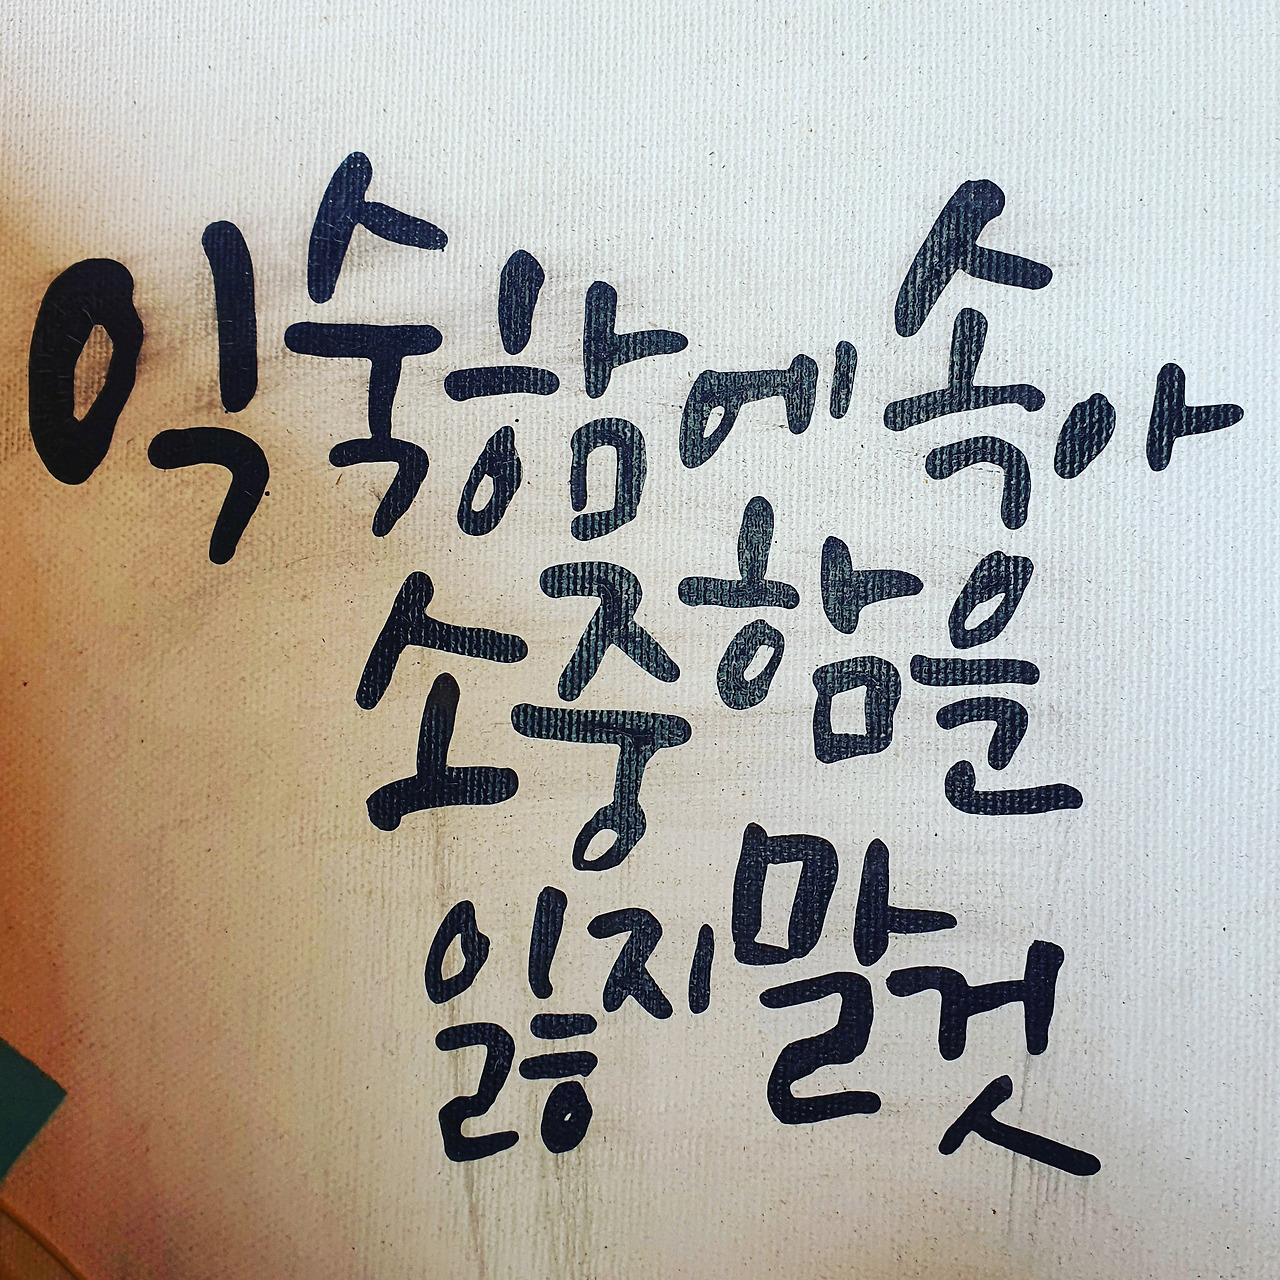 익숙함에 속아
소중함을
잃지 말 것